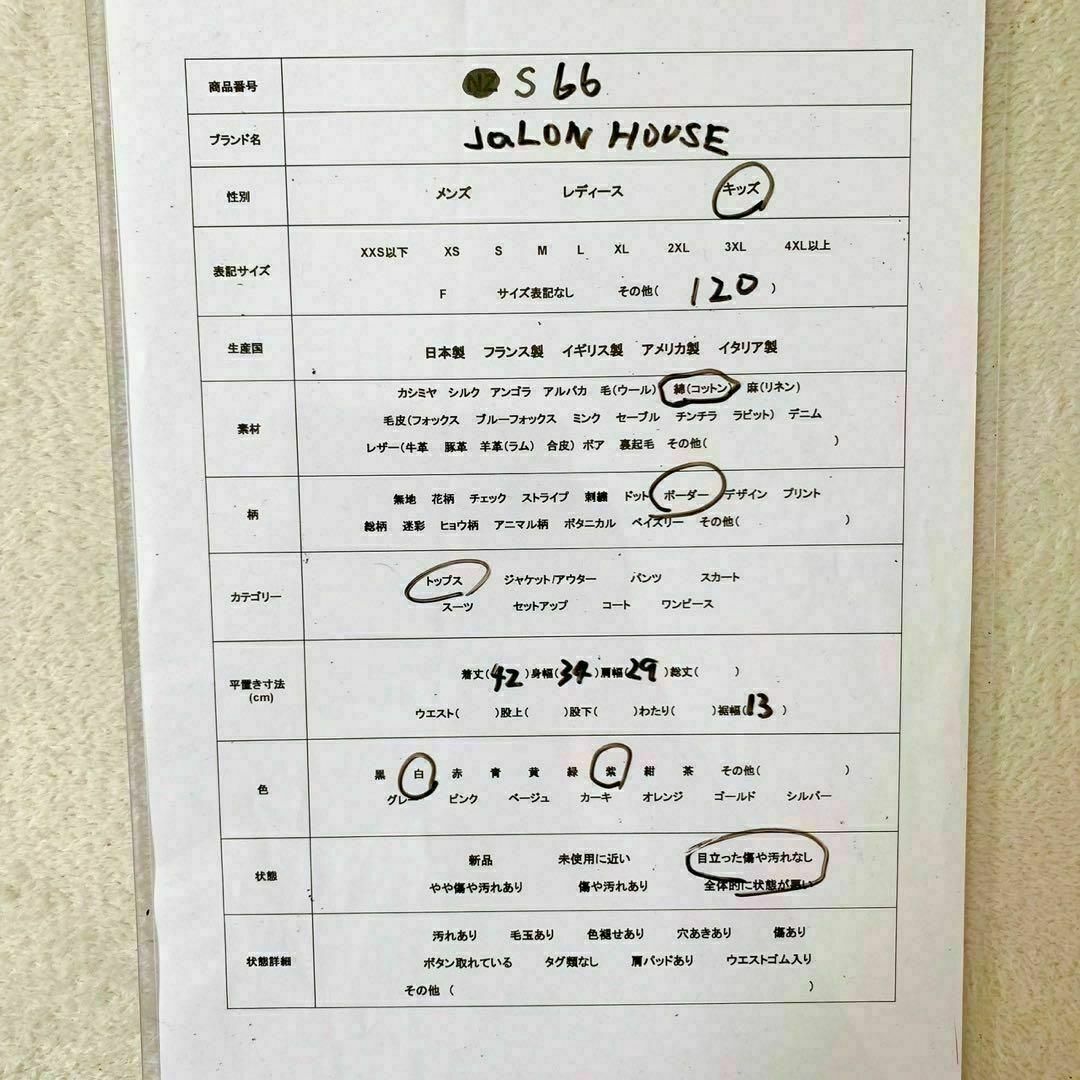 商品番号 NZ S 66
ブランド名 JaLON HOUSE
性別 メンズ レディース キッズ
XXS以下 XS S M L XL 2XL 3XL 4XL以上
表記サイズ
F サイズ表記なし その他( 120 )
生産国 日本製 フランス製 イギリス製 アメリカ製 イタリア製
カシミヤ シルク アンゴラ アルパカ 毛(ウール) 綿(コットン) 麻(リネン)
素材 毛皮(フォックス ブルーフォックス ミンク セーブル チンチラ ラビット) デニム
レザー(牛革 豚革 羊革(ラム) 合皮) ボア 裏起毛 その他( )
柄 無地 花柄 チェック ストライプ 刺繍 ドット ボーダー デザイン プリント
総柄 迷彩 ヒョウ柄 アニマル柄 ボタニカル ペイズリー その他( )
カテゴリー トップス ジャケット/アウター パンツ スカート
スーツ セットアップ コート ワンピース
平置き寸法 着丈(42)身幅(34)肩幅(29)総丈( )
(cm) ウエスト( )股上( )股下( )わたり( )裾幅(13)
色 黒 白 赤 青 黄 緑 紫 紺 茶 その他( )
グレー ピンク ベージュ カーキ オレンジ ゴールド シルバー
状態 新品 未使用に近い 目立った傷や汚れなし
やや傷や汚れあり 傷や汚れあり 全体的に状態が悪い
汚れあり 毛玉あり 色褪せあり 穴あきあり 傷あり
状態詳細 ボタン取れている タグ類なし 肩パッドあり ウエストゴム入り
その他 ( )